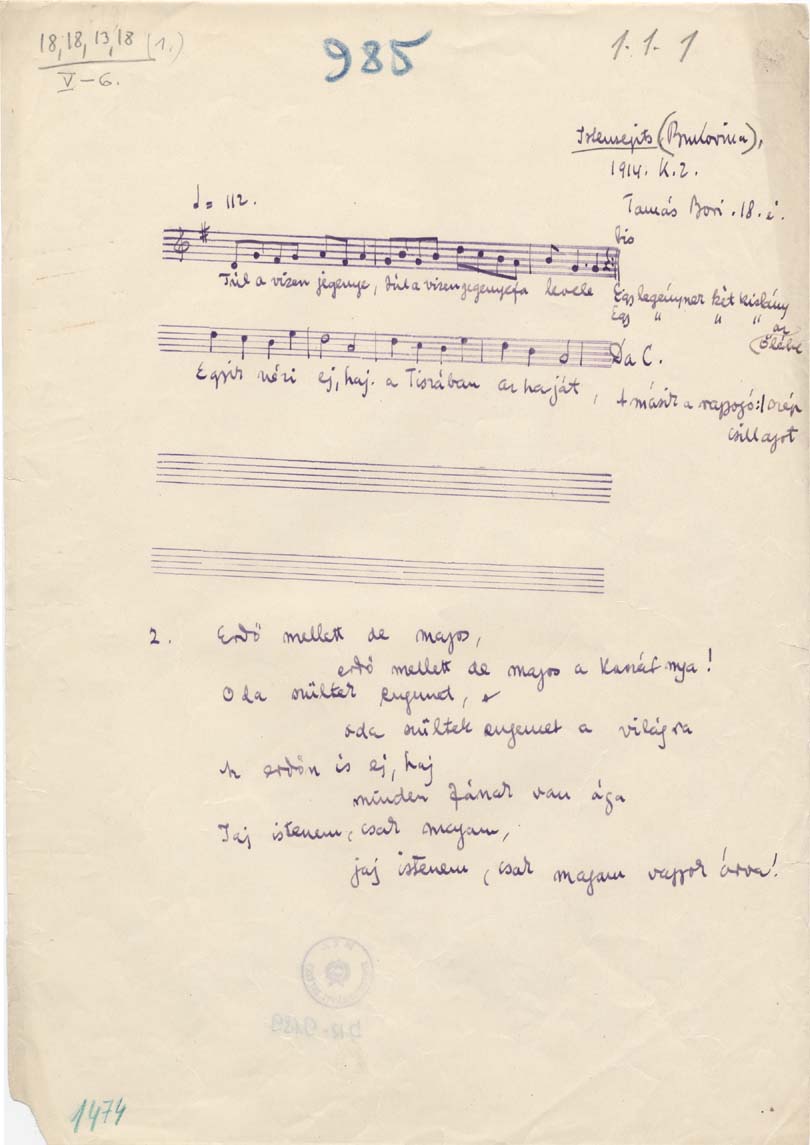 18, 18, 13, 18 (1.)
V-6.
985
1. 1. 1
Istensegits (Bukovina),
1914. K. 2.
Tamás Bori. 18. é.
♩ = 112.
bis
Túl a vizen jegenye, túl a vizen jegenyefa levele Egy legénynek két kislány
Egy " " " az
ölébe
Da C.
Egyik nézi ej, haj. a Tiszában az haját, A másik a ragyogó :/ szép
csillagot
2. Erdő mellett de magos,
erdő mellett de magos a
Oda szültek engemet,
oda szültek engemet a világra
Az erdőn is ej, haj
minden fának van ága
Jaj istenem, csak magam,
jaj istenem, csak magam vagyok árva!
1474